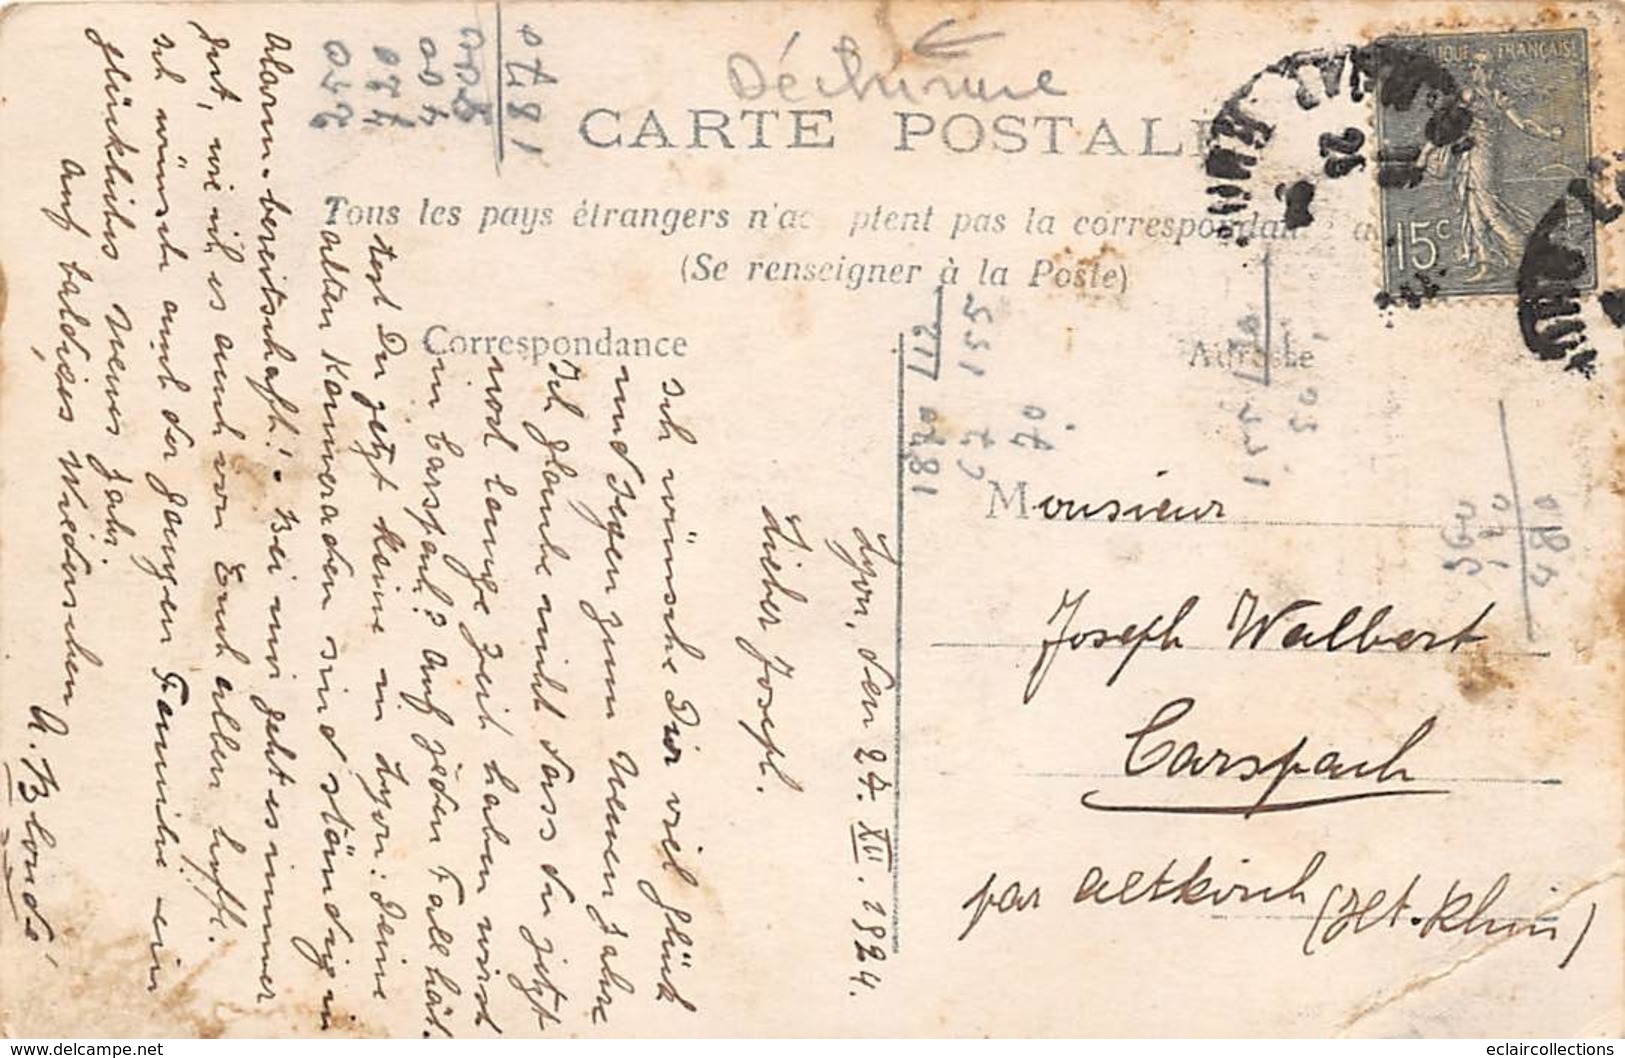 Déchirure
CARTE POSTALE
Tous les pays étrangers n'ac ptent pas la correspondan
(Se renseigner à la Poste)
Correspondance
Adresse
RANÇAISE
15c
Monsieur
Joseph Walbert
Carspach
par Altkirch (Ht. Rhin)
Lyon, den 27. XII. 1924.
Lieber Joseph.
Ich wünsche Dir viel Glück
und Segen zum Neuen Jahre
Ich glaube nicht dass du jetzt
wod lange Zeit haben wirst
in Carspach? Auf jeden Fall hät-
test Du jetzt keine in Lyon: Deine
alten Kameraden sind ständig in
Alarm-bereitschaft! - Bei mir geht es immer
gut, wie ich es auch von Euch allen hoffe.
Ich wünsche auch der ganzen Familie ein
glückliches Neues Jahr.
Auf baldiges Wiedersehen
A. Blondé
1870
171
155
70
360
120
480
eclaircollections
www.delcampe.net